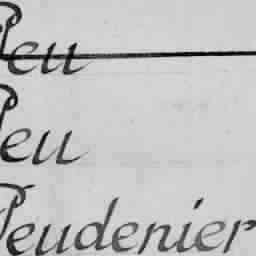 Peu
Peu
Peudenier